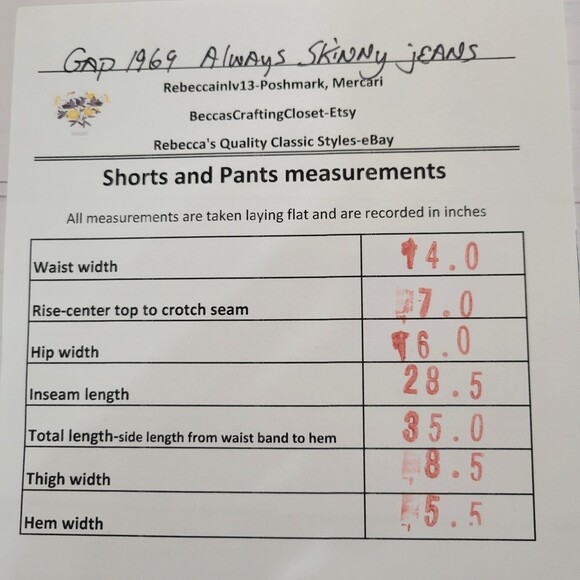 GAP 1969 Always Skinny jeans
Rebeccainlv13-Poshmark, Mercari
BeccasCraftingCloset-Etsy
Rebecca's Quality Classic Styles-eBay
Shorts and Pants measurements
All measurements are taken laying flat and are recorded in inches
Waist width 14.0
Rise-center top to crotch seam 7.0
Hip width 16.0
Inseam length 28.5
Total length-side length from waist band to hem 35.0
Thigh width 8.5
Hem width 5.5